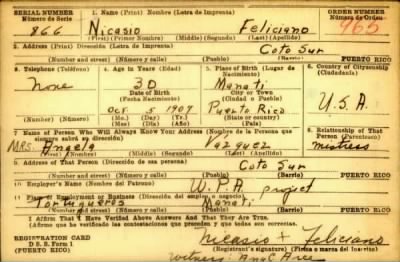 SERIAL NUMBER 1. NAME (Print) NOMBRE (Letra de Imprenta) ORDER NUMBER
Número de Serie Número de Orden
866 Nicasio Feliciano 965
(First) (Primer Nombre) (Middle) (Segundo) (Last) (Apellido)
2. ADDRESS (Print) Dirección (Letra de Imprenta)
Coto Sur
(Number) (Número) (Street) (Calle) (Town) (Pueblo) (Barrio) PUERTO RICO
3. Telephone (Teléfono) 4. Age in Years (Edad) 5. Place of Birth (Lugar de Nacimiento) 6. Country of Citizenship (Ciudadanía)
None 30 Manati
Date of Birth City or Town
(Fecha Nacimiento) (Ciudad o Pueblo) U.S.A.
Oct 5 1909 Puerto Rico
(Number) (Número) (Mo.) (Day) (Yr.) State or country
(Mes) (Día) (Año) (País)
7. Name of Person Who Will Always Know Your Address (Nombre de la Persona que siempre sabrá su dirección) 8. Relationship of That Person (Parentesco)
Mrs. Angela Vazquez mistress
(First) (Primer Nombre) (Middle) (Segundo) (Last) (Apellido)
9. Address of That Person (Dirección de esa persona)
Coto Sur
(Number) (Número) (Street) (Calle) (Town) (Pueblo) (Barrio) PUERTO RICO
10. Employer's Name (Nombre del Patrono)
W.P.A. project
11. Place of Employment or Business (Dirección del empleo o negocio)
Tortuguero Manati
(Number) (Número) (Street) (Calle) (Town) (Pueblo) (Barrio) PUERTO RICO
I Affirm That I Have Verified Above Answers And That They Are True.
(Afirmo que he verificado las contestaciones que preceden y que todas son correctas.)
REGISTRATION CARD Nicasio x Feliciano
D. S. S. Form 1 (Registrant's signature) (Firma o marca del Inscrito)
(PUERTO RICO) Witness: Ana C Arce